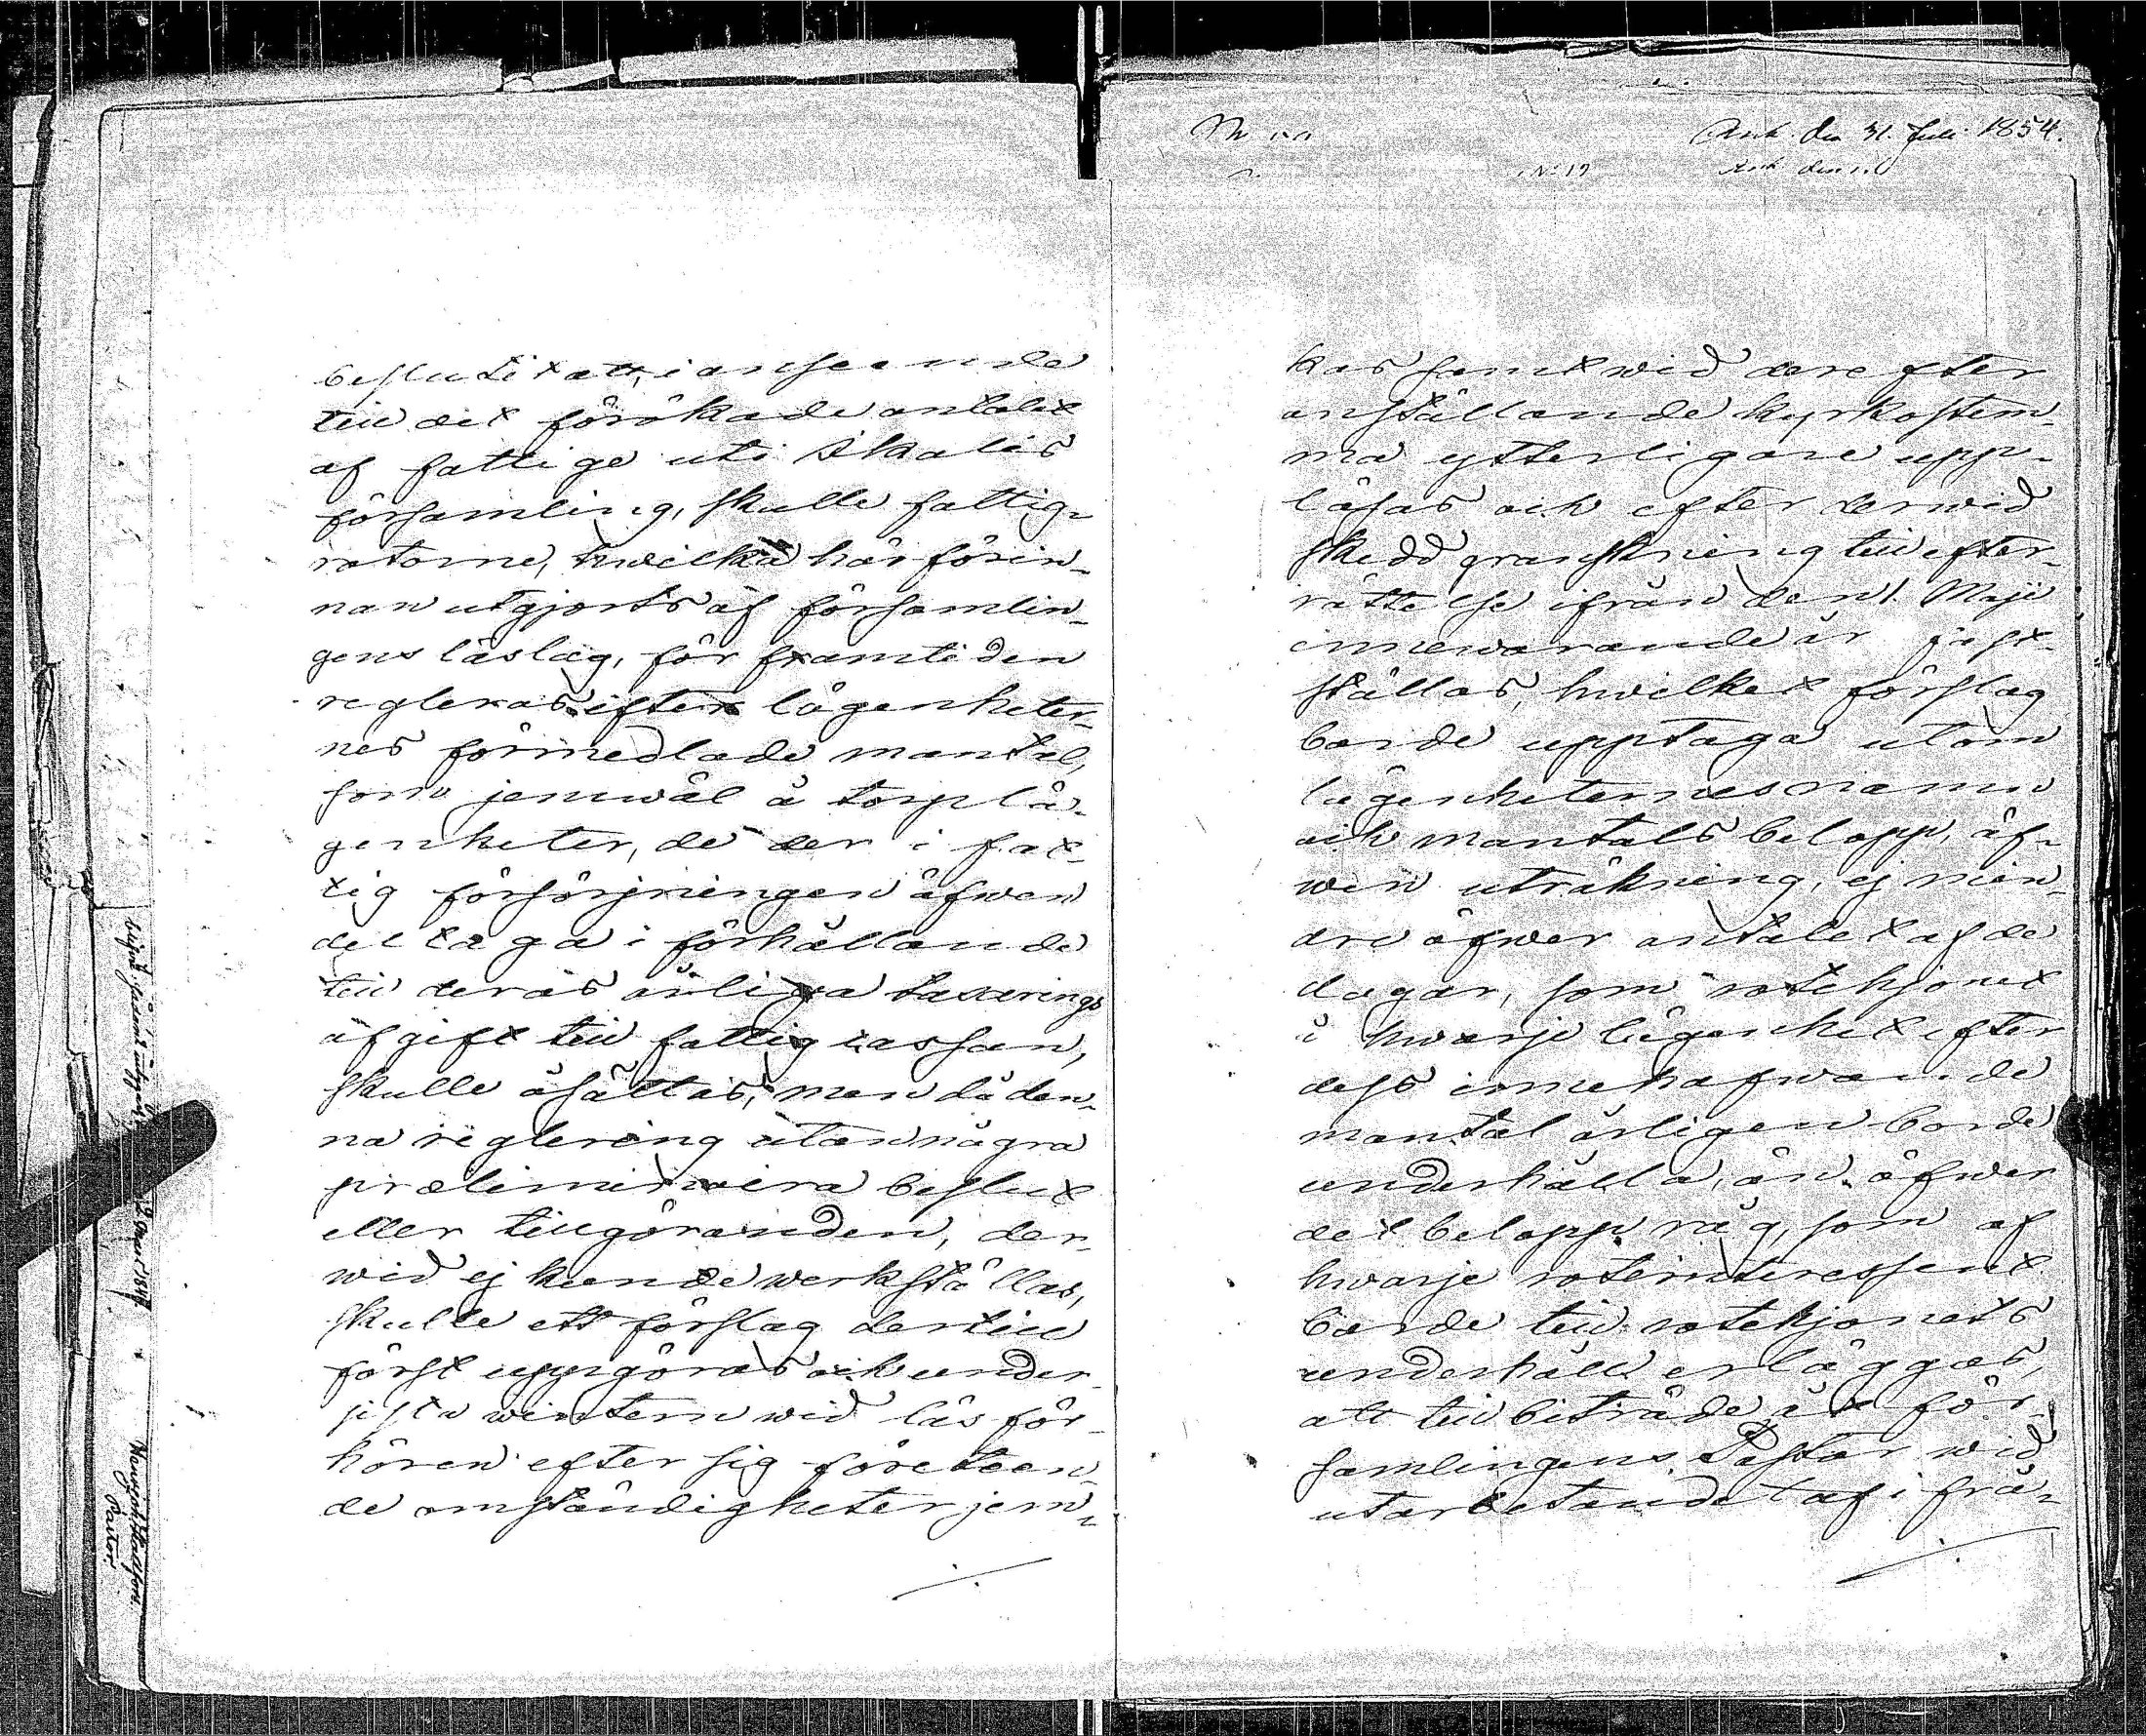 beslutit att, i anseende
till det förökade antalet
af fattige uti Ikalis
församling, skulle fattig-
rotorne, hwilka här förin-
nan utgjorts af försam̄lin-
gens läslag, för framtiden
regleras efter lägenheter-
nes förmedlade mantal,
som jemwäl å torplä-
genheter, de der i fat-
tig försörjningen äfwen
deltaga i förhållande
till deras årliga taxerings
afgift till fattig cassan,
skulle åsättas; men då den-
na reglering utan några
præliminaira beslut
eller tillgöranden, der-
wid ej kunde werkställas,
skulle ett förslag dertill
först uppgöras och under
sista wintern wid läs för-
hören efter sig företeen-
de omständigheter jem-
Ank. den 31. Juli 1854.
No 19
kas samt wid derefter
anställande kyrkostem-
ma ytterligare upp-
läsas och efter derwid
skedd granskning till efter-
rättelse ifrån den 1. Maji
innewarande år fast-
ställas, hwilket förslag
borde upptaga utom
lägenheternes namn
och mantals belopp, äf-
wen uträkning, ej min-
dre öfwer antalet af de
dagar, som rotehjonet
i hwarje lägenhet efter
dess innehafwande
mantal årligen borde
underhålla, än öfwer
det belopp råg, som af
hwarje roteinteressent
borde till rotehjonets
underhåll erläggas,
att till biträde åt för-
samlingens Pastor wid
utarbetandet af ifrå-
Pastor.